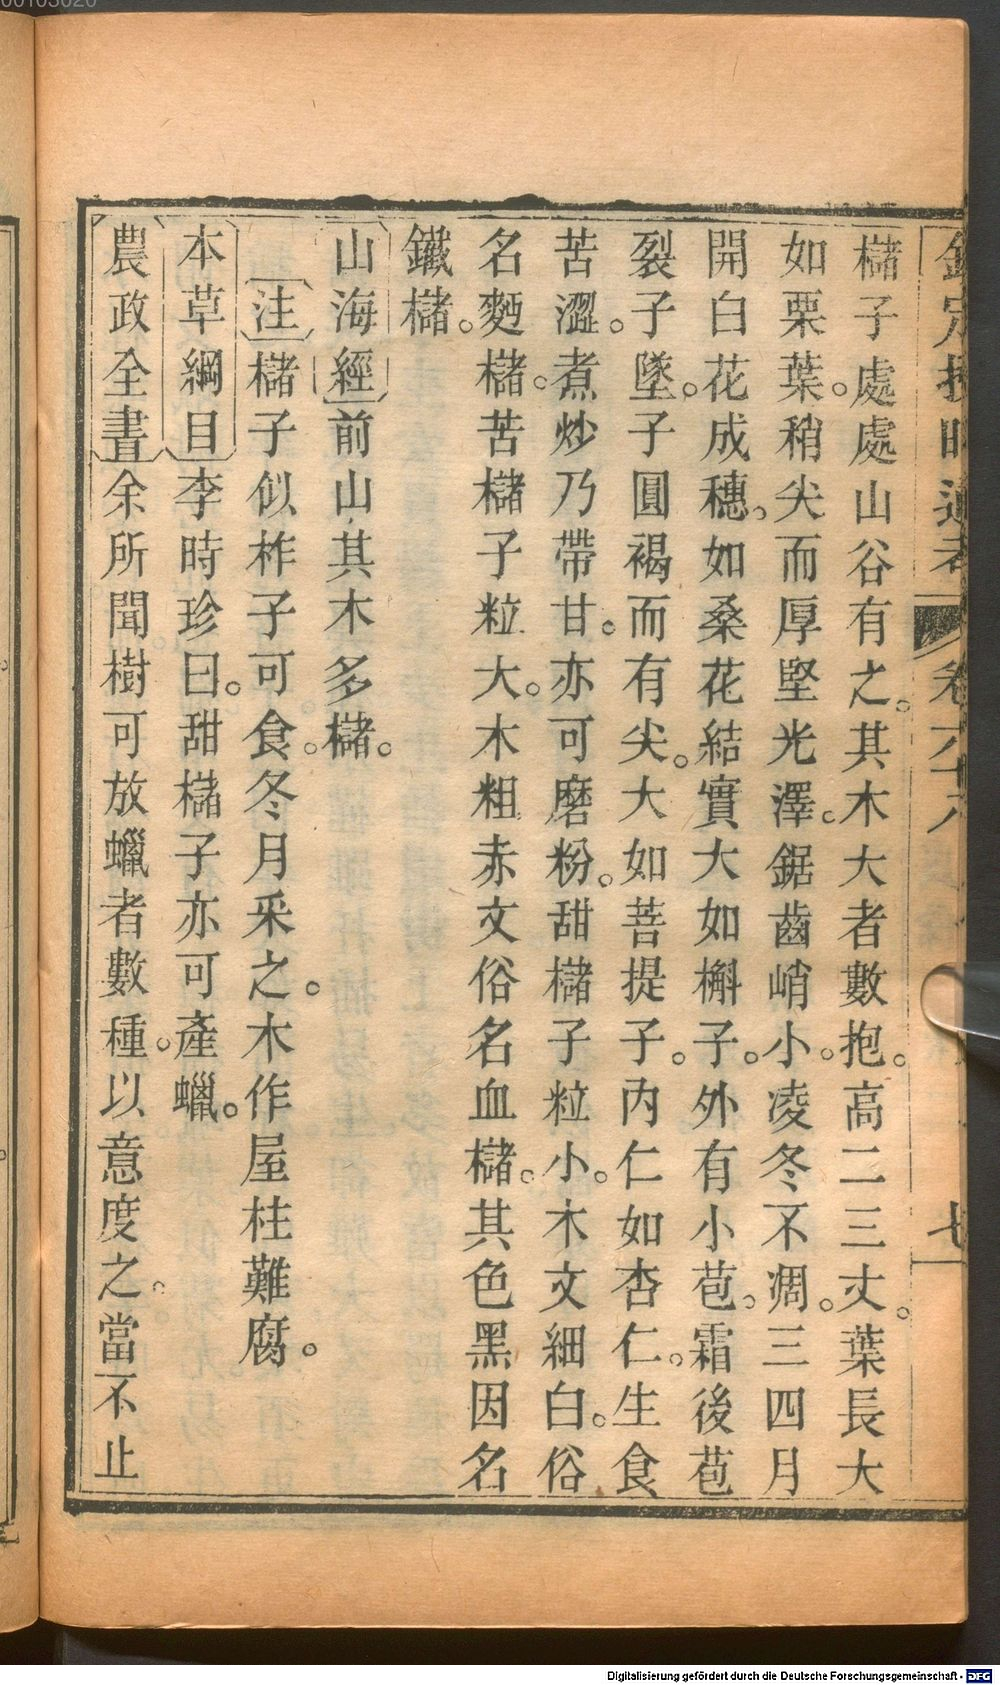 欽定授時通考 卷六十六 七
櫧子處處山谷有之。其木大者數抱。高二三丈。葉長大
如栗葉。稍尖而厚堅光澤。鋸齒峭小。凌冬不凋。三四月
開白花成穗。如桑花結實大如槲子。外有小苞。霜後苞
裂子墜。子圓褐而有尖。大如菩提子。內仁如杏仁。生食
苦澀。煮炒乃帶甘。亦可磨粉。甜櫧子粒小。木文細白。俗
名麪櫧。苦櫧子粒大。木粗赤文俗名血櫧。其色黑因名
鐵櫧。
山海經前山其木多櫧。
注櫧子似柞子可食。冬月采之。木作屋柱難腐。
本草綱目李時珍曰。甜櫧子亦可產蠟。
農政全書余所聞樹可放蠟者數種。以意度之。當不止
00103020
Digitalisierung gefördert durch die Deutsche Forschungsgemeinschaft - DFG